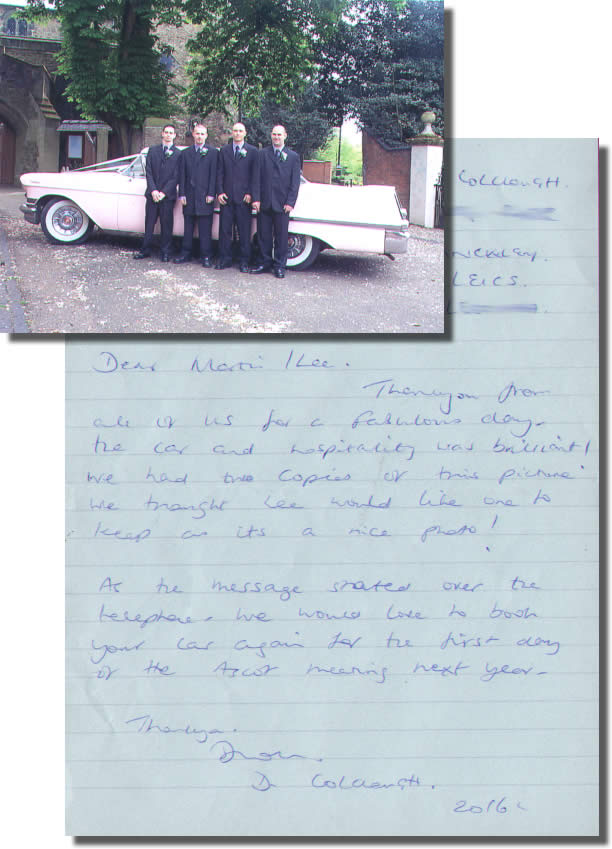 Colclough.
Hinckley.
LEICS.
Dear Martin / Lee.
Thankyou from
all of us for a fabulous day.
the car and hospitality was brilliant!
We had two copies of this picture
we thought Lee would like one to
keep as its a nice photo!
As the message stated over the
telephone. We would love to book
your car again for the first day
of the Ascot meeting next year.
Thankyou.
D Colclough.